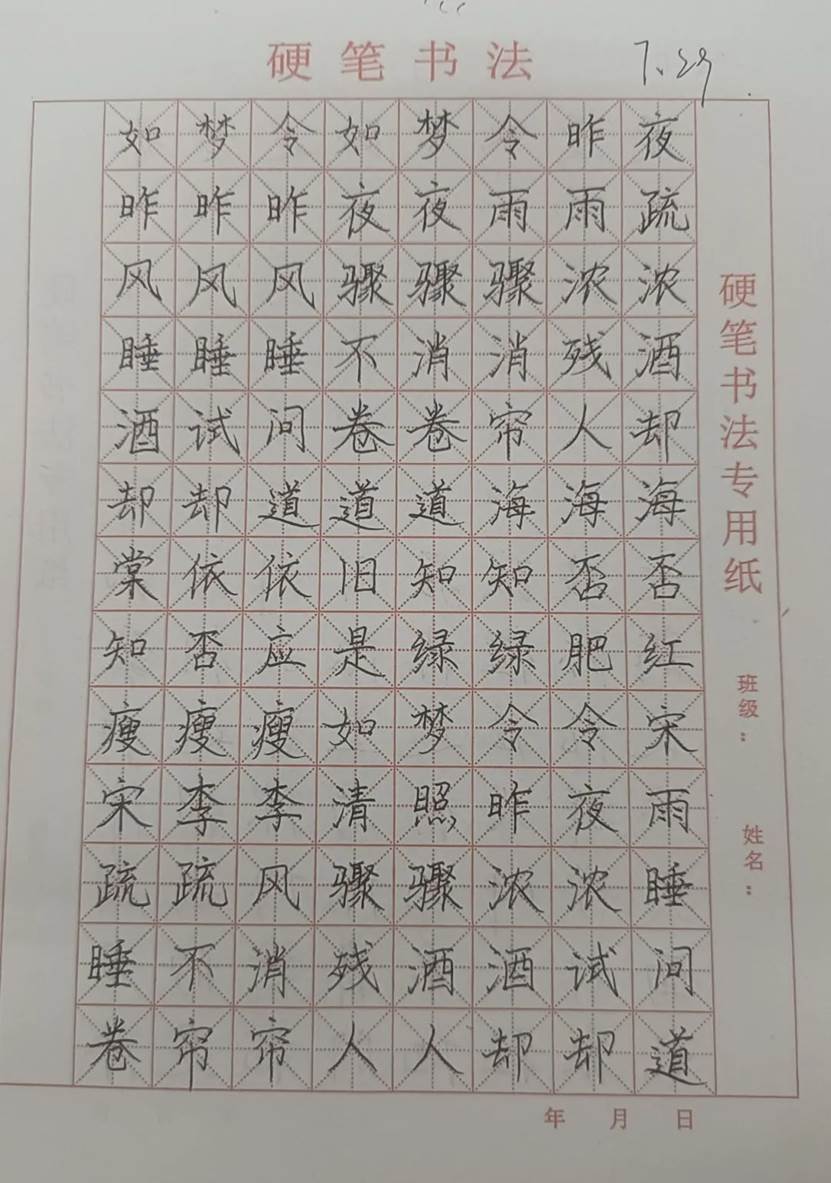 硬笔书法
7.29
如梦令如梦令昨夜
昨昨昨夜夜雨雨疏
风风风骤骤骤浓浓
睡睡睡不消消残酒
酒试问卷卷帘人却
却却道道道海海海
棠依依旧知知否否
知否应是绿绿肥红
瘦瘦瘦如梦令令宋
宋李李清照昨夜雨
疏疏风骤骤浓浓睡
睡不消残酒酒试问
卷帘帘人人却却道
硬笔书法专用纸
班级：
姓名：
年 月 日